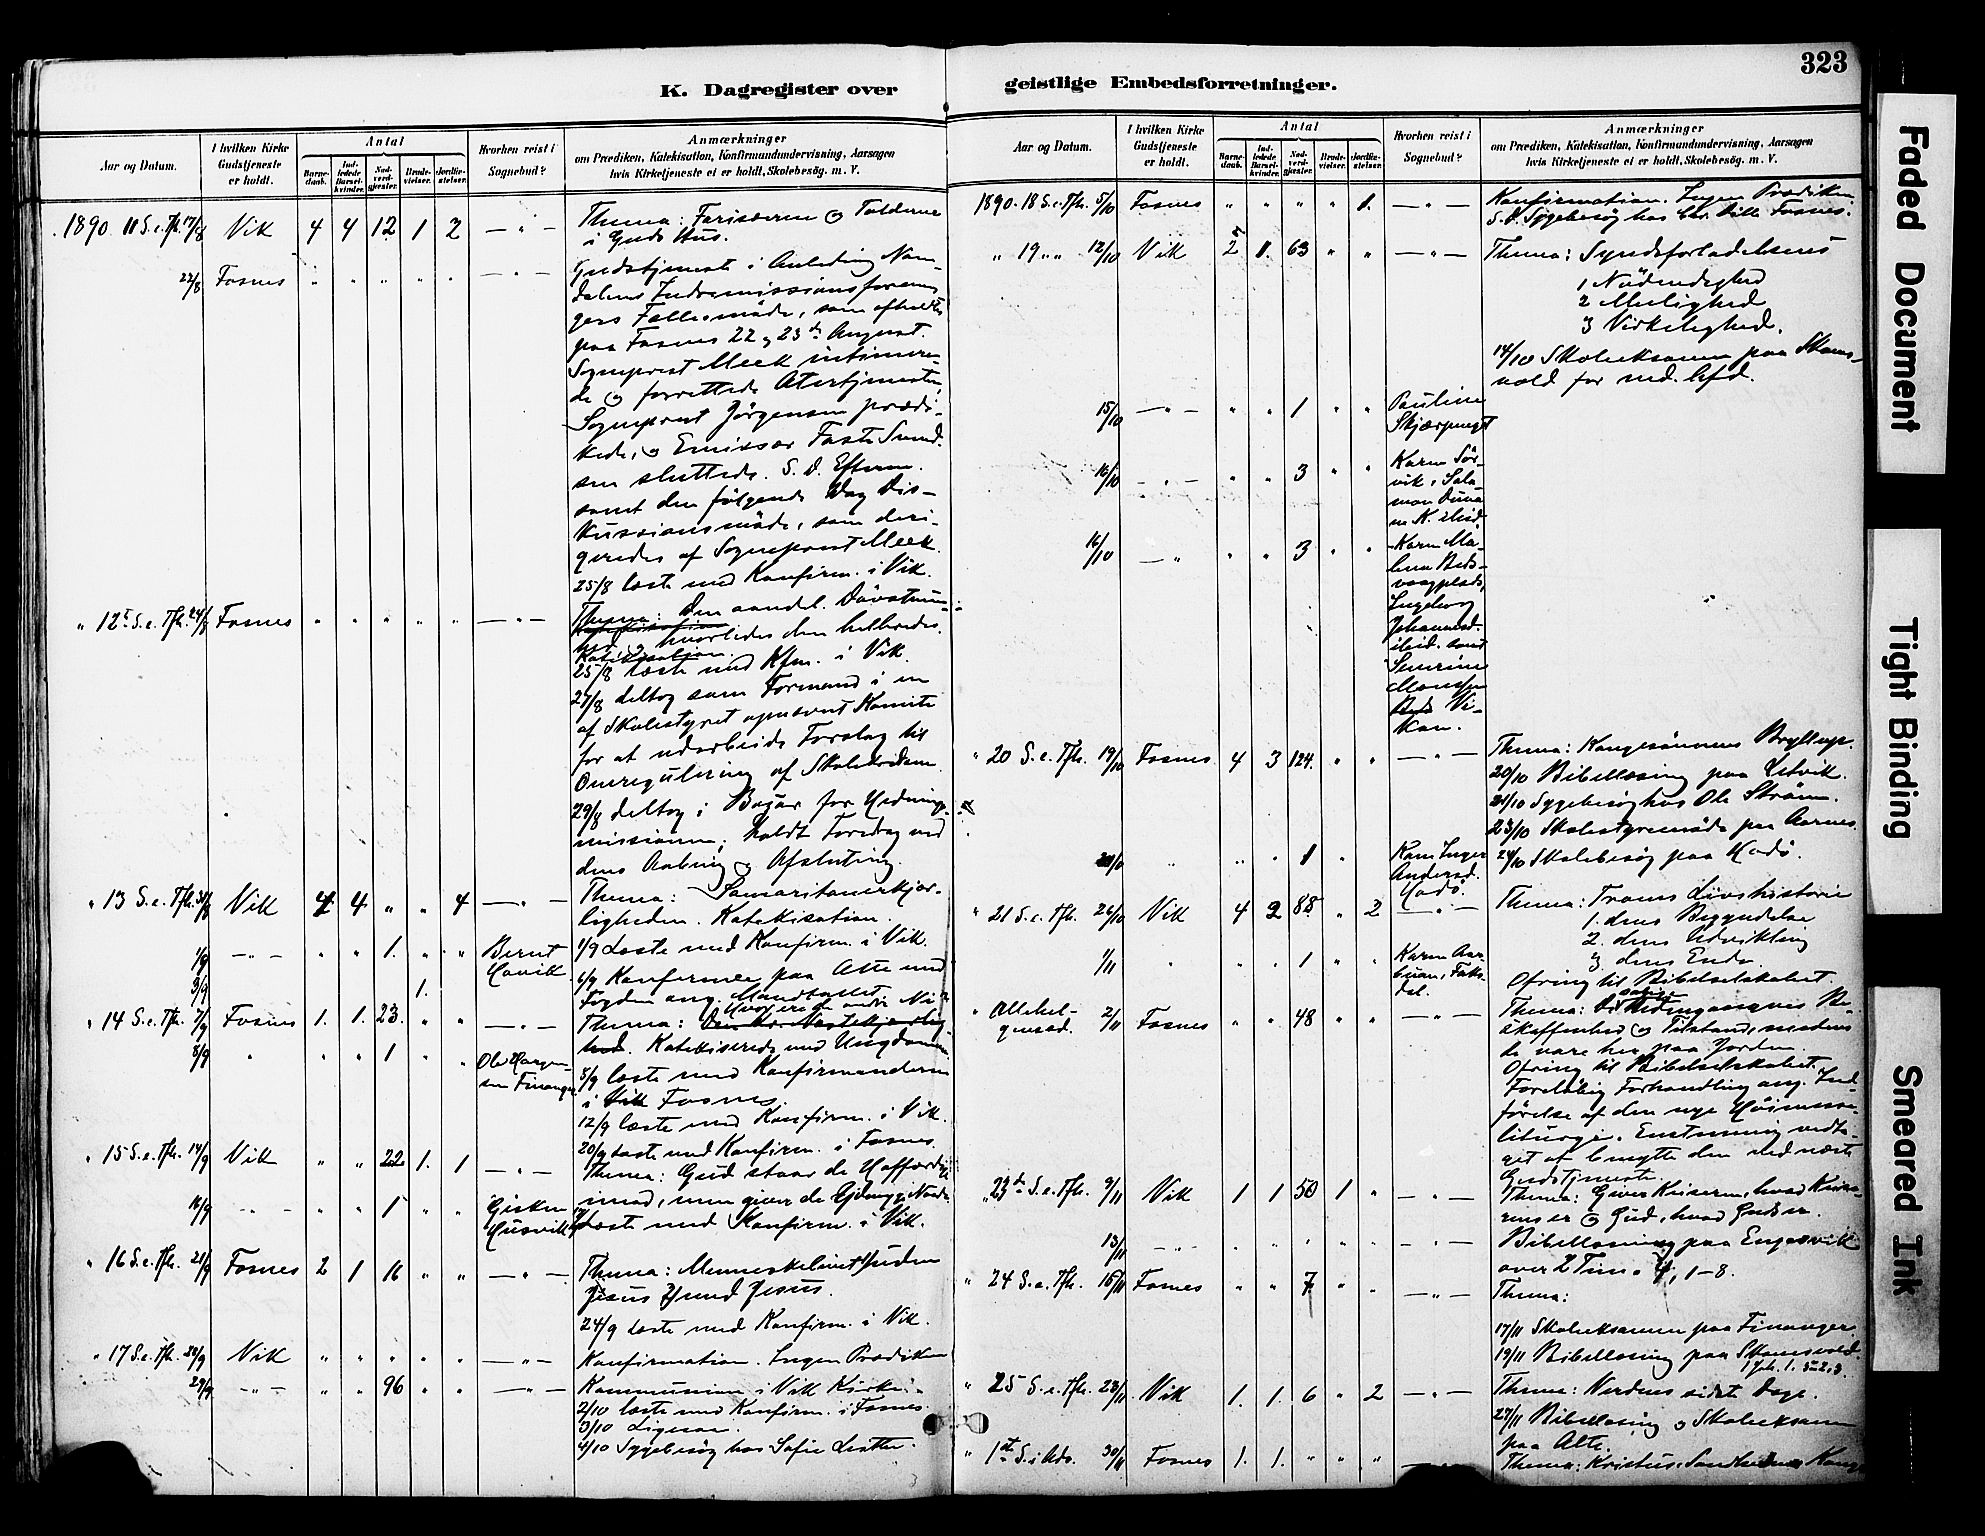 323
K. Dagregister over geistlige Embedsforretninger.
Aar og Datum.
I hvilken Kirke Gudstjeneste er holdt.
Antal
Barne-daab.
Ind-ledede Barsel-kvinder.
Nad-verd-gjester.
Brude-vielser.
Jordfæ-stelser.
Hvorhen reist i Sognebud?
Anmærkninger
om Prædiken, Katekisation, Konfirmandundervisning, Aarsagen
hvis Kirketjeneste ei er holdt, Skolebesög. m. V.
1890 11 S. e. Tfh. 17/8 Vik 4 4 12 1 2 — " —
Thema: Farisæeren og Tolderne
i Guds Hus.
22/8 Fosnes " " " " " — " —
Gudstjeneste i Anledning Nam-
dalens Indremissionsforenin-
gers Fællesmøde, som afholdtes
paa Fosnes 22 og 23de August.
Sogneprest Meek intimere-
de og forrettede Altertjenesten,
Sogneprest Jörgensen prædi-
kede, og Emissær
sluttede. S. D. Efterm.
samt den følgende Dag Dis-
kussionsmøde, som diri-
geredes af Sogneprest Meek.
25/8 læste med Konfirm. i Vik.
" 12te S. e. Tfh. 24/8 Fosnes " " " " " — " —
Thema: Den aandel. Døvstum-
hed og hvorledes den helbredes.
Katekisation.
25/8 læste med Kfm. i Vik.
27/8 deltog som Formand i en
af Skolestyret opnævnt Komite
for at udarbeide Forslag til
Omregulering af Skolekredsene.
29/8 deltog i Bazar for Hednінge-
missionen, holdt Foredrag ved
dens Aabning og Afslutning.
" 13 S. e. Tfh. 31/8 Vik 4 4 " " 4 — " —
Thema: Samaritanerkjær-
ligheden. Katekisation.
1/9 — " — " " 1. " " Bernt
Hovik
1/9 Læste med Konfirm. i Vik.
3/9 1.
4/9 Konfererer paa Alte med
Fogden ang. Mandtallet
" 14 S. e. Tfh. 7/9 Fosnes 1. 1. 23. " " — " —
Thema: Hvor ere de andre Ni?
Katekiserede med Ungdommen
8/9 " " " 1 " " Ole Haagen-
sen Finanger
8/9 læste med Konfirmanderne
i Vik Fosnes.
12/9 læste med Konfirm. i Vik.
20/9 læste med Konfirm. i Fosnes.
" 15 S. e. Tfh. 14/9 Vik " " 22 1. 1 — " —
Thema: Gud staar de Hoffærdige
imod, men giver de Ydmyge Naade.
16/9 — " — " " 1 " "
Husvik
Læste med Konfirm. i Vik.
" 16 S. e. Tfh. 21/9 Fosnes 2 1 16 " " — " —
Thema: Menneskelivet 1) uden
Jesus 2) med Jesus.
24/9 Læste med Konfirm. i Vik.
" 17 S. e. Tfh. 28/9 Vik " " " " " — " —
Konfirmation. Ingen Prædiken
29/9 — " — " " 96 " " — " —
Kommunion i Vik Kirke.
2/10 læste med Konfirm. i Fosnes.
3/10 Ligesaa.
4/10 Sygebesøg hos Sofie
Aar og Datum.
I hvilken Kirke Gudstjeneste er holdt.
Antal
Barne-daab.
Ind-ledede Barsel-kvinder.
Nad-verd-gjester.
Brude-vielser.
Jordfæ-stelser.
Hvorhen reist i Sognebud?
Anmærkninger
om Prædiken, Katekisation, Konfirmandundervisning, Aarsagen
hvis Kirketjeneste ei er holdt, Skolebesög. m. V.
1890. 18 S. e. Tfh. 5/10 Fosnes " " " " 1. — " —
Konfirmation. Ingen Prædiken
S. D. Sygebesøg hos Fosnes.
" 19 " " 12/10 Vik 2 1. 63 " " — " —
Thema: Syndsforladelsens
1 Nødvendighed
2 Mulighed
3 Virkelighed.
14/10 Skoleeksamen paa Skoms-
vold for ned. Afd.
15/10 — " — " " 1 " " Pauline
16/10 — " — " " 3 " " Karen Sör-
vik, Salo-
mon
16/10 — " " " 3 " " Karen Ma-
lena Beds-
vaagplads,
Ingeborg
Johannesd.
samt
Severine
Vi-
kan.
" 20 S. e. Tfh. 19/10 Fosnes 4 3 124. " " — " —
Thema: Kongesønnens Bryllup.
20/10 Bibellæsning paa
21/10 Sygebesøg hos Ole Ström.
23/10 Skolestyremøde paa Aarnes.
" " " 1 " Karen Inger
Andersd.
Hodö.
24/10 Skolebesøg paa Hodö.
" 21 S. e. Tfh. 26/10 Vik 4 2 88 " 2 — " —
Thema: Troens Livshistorie
1. dens Begyndelse
2. dens Udvikling
3 dens Ende
1/11 " " " 1 " " Karen
Ofring til Bibelselskabet.
" Allehel-
gensd. 2/11 Fosnes " " 48 " " — " —
Thema: De Be-
skaffenhed og Tilstand, medens
de vare her paa Jorden.
Ofring til Bibelselskabet.
Foreløbig Forhandling ang. Ind-
førelse af den nye Høimesse-
liturgi. Enstemmig vedta-
get at benytte den ved næste
Gudstjeneste.
" 23de S. e. Tfh. 9/11 Vik 1 1 50 1 " — " —
Thema: Giver Keiseren, hvad Keise-
rens er og Gud, hvad Guds er.
13/11 — " — " " " " " — " —
Bibellæsning paa Engesvik
over 2 Tim. 4, 1-8.
" 24 S. e. Tfh. 16/11 Fosnes " " 7 " " — " —
Thema:
17/11 Skoleeksamen paa Finanger.
19/11 Bibellæsning paa Skomsvold.
" 25 S. e. Tfh. 23/11 Vik 1. 1. 6 " 2 — " —
Thema: Verdens sidste Dage.
27/11 Bibellæsning og Skoleeksamen
paa Alte.
" 1ste S. i Adv. 30/11 Fosnes 1. 1. " " " — " —
Thema: Kristus, Sandhedens Konge
Faded Document
Tight Binding
Smeared Ink